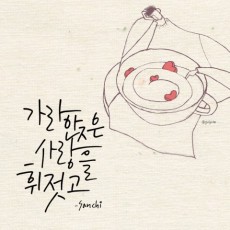 가라앉은
사랑을
휘젓고
-Sanchi